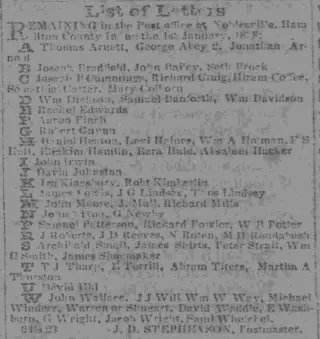 List of Letters
REMAINING in the Post office at Noblesville, Ham
ilton County Ia on the 1st January, 1848;
A Thomas Arnett, George Abey 2, Jonathan Ar
nold
B Joseph Bradfield, John Bailey, Seth Brock
C Joseph P Cummings, Richard Curig, Hiram Coffee,
Carter, Mary Colborn
D Wm Dickson, Samuel Danforth, Wm Davidson
E Rachel Edwards
F Aaron Finch
G Robert Gavan
H Daniel Heaton, Levi Haines, Wm A Holman, F S
Hamlin, Ezra Hale, Absalom Hacker
I John Irwin
J David Johnston
K Jim Kingsbury, Robt Kimberlin
L James Lewis, J G Lindsey, Thos Lindsey
M John Moore, J Mott, Richard Mills
N John G Newby
P Samuel Patterson, Richard Fowler, W R Potter
R J Roberts, J D Reeves, N Boren, M D
S Archibald Small, James Shirts, Peter Strait, Wm
C Smith, James Shoemaker
T T J Tharp, E Terrill, Abram Titers, Martha A
Thurston
U David Uhl
W John Wallace, J J Will Wm W Way, Michael
Winders, Warren or Shugart, David Waddle, E Wash-
burn, G Wright, Jacob Wright, Saml Whelchel
J. D. STEPHENSON, Postmaster.